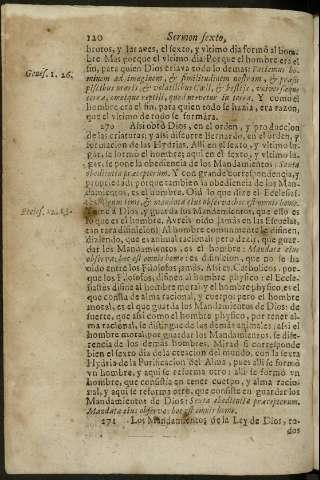 120 Sermon sexto,
brutos, y las aves, el sexto, y vltimo dia formò al hom-
bre. Mas porque el vltimo dia? Porque el hombre era el
fin, para quien Dios criava todo lo demas: Faciamus ho-
Genes. 1. 26.
minem ad imaginem, & similitudinem nostram, & præsit
piscibus maris, & volatilibus Cœli, & bestijs, vniversæque
terræ, omnique reptili, quod movetur in terra. Y como el
hombre era el fin, para quien todo se hazia, era razon,
que el vltimo de todo se formàra.
270 Assi obrò Dios, en el orden, y produccion
de las criaturas; y assi discurre Bernardo, en el orden, y
formacion de las Hydrias. Alli en el sexto, y vltimo lu-
gar, se formò el hombre; aqui en el sexto, y vltimo lu-
gar, se pone la obediencia de los Mandamientos: Sexta
obedientia præceptorum. Y con grande correspondencia, y
propriedad; porque tambien la obediencia de los Man-
damientos, es el hombre. Dia lo que dize el Eclesias-
Deum time, & mandata eius observa: hoc est omnis homo.
Ecclesi. 12. 13.
Teme à Dios, y guarda sus Mandamientos, que esto es
lo que es el hombre. Aveis oido jamàs en las Escuelas,
tan rara difinicion? Al hombre comunmente le difinen,
diziendo, que es animal racional; pero dezir, que guar-
dar los Mandamientos, es el hombre: Mandata eius
observa: hoc est omnis homo: es difinicion, que no se ha
oido entre los Filosofos jamàs. Assi es, Catholicos, por-
que los Filosofos, difinen al hombre physico: el Ecle-
siastès difine al hombre moral; y el hombre physico, es el
que consta de alma racional, y cuerpo; pero el hombre
moral, es el que guarda los Mandamientos de Dios: de
suerte, que assi como el hombre physico, por tener al-
ma racional, se distingue de los demàs animales; assi el
hombre moral, por guardar los Mandamientos, se dife-
rencia de los demàs hombres. Mirad si corresponde
bien el sexto dia de la creacion del mundo, con la sexta
Hydria de la Purificacion del Alma, pues alli se formò
vn hombre, y aqui se reforma otro: alli se formò vn
hombre, que consistia en tener cuerpo, y alma racio-
nal, y aqui se reforma otro, que consiste en guardar los
Mandamientos de Dios: Sexta obedientia præceptorum.
Mandata eius observa: hoc est omnis homo.
271 Los Mandamientos de la Ley de Dios, to-
dos